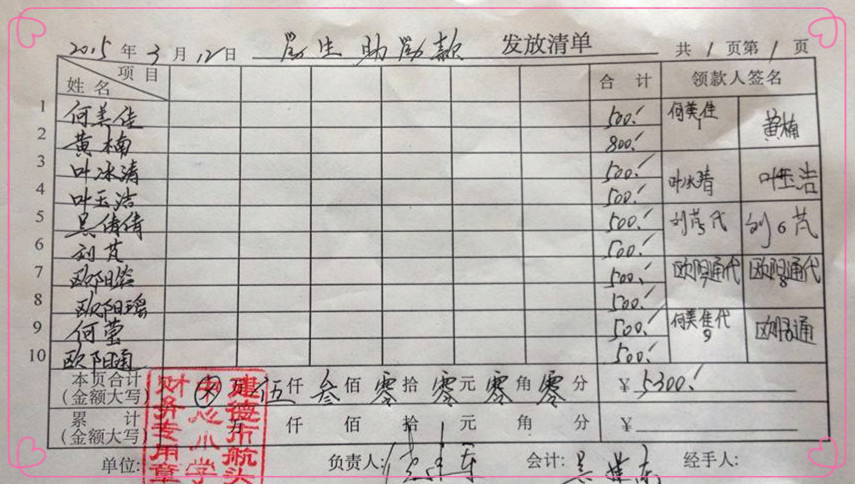 2015年3月12日 学生助学款 发放清单 共1页第1页
项目 姓名 合计 领款人签名
1 何美佳 500.- 何美佳 1
2 黄楠 800.- 黄楠
3 叶冰清 500.- 叶冰清
4 叶玉洁 500.- 叶玉洁
5 吴倩倩 500.- 刘芃代
6 刘芃 500.- 刘6芃
7 欧阳 500.- 欧阳通代 7
8 欧阳瑶 500.- 欧阳通代 8
9 何莹 500.- 何美佳代 9
10 欧阳通 500.- 欧阳通
本页合计(金额大写) 伍仟叁佰零拾零元零角零分 ¥5300.-
累计(金额大写) 万仟佰拾元角分 ¥
单位: 负责人: 会计: 经手人:
建德市航头
中心小学
财务专用章